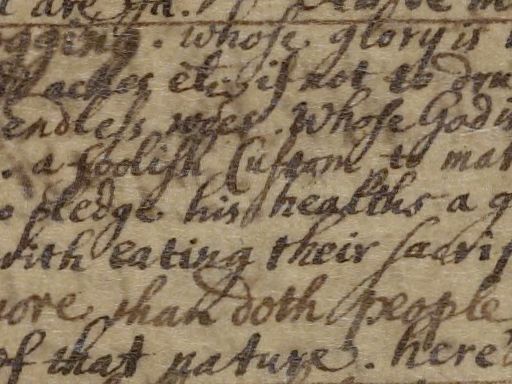 whose glory is
aches etc. if not to dru
endless woes. Whose God i
. a foolish Custom to mak
pledge his healths a g
with eating their sacrif
more than doth people
of that nature. here